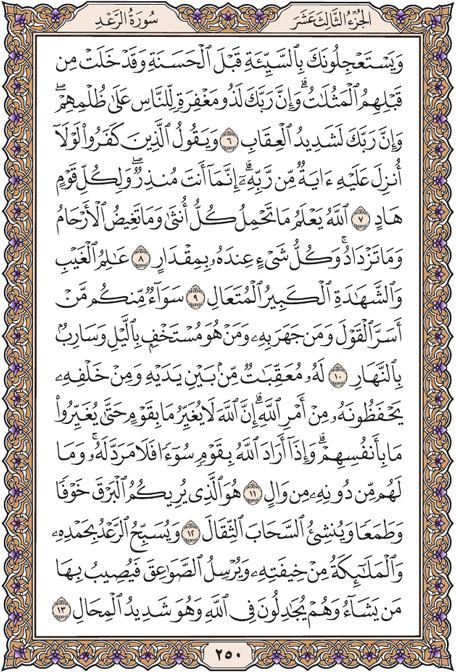 الجزء الثالث عشر
سورة الرعد
وَيَسْتَعْجِلُونَكَ بِالسَّيِّئَةِ قَبْلَ الْحَسَنَةِ وَقَدْ خَلَتْ مِن
قَبْلِهِمُ الْمَثُلَاتُ ۗ وَإِنَّ رَبَّكَ لَذُو مَغْفِرَةٍ لِّلنَّاسِ عَلَىٰ ظُلْمِهِمْ ۖ
وَإِنَّ رَبَّكَ لَشَدِيدُ الْعِقَابِ ٦ وَيَقُولُ الَّذِينَ كَفَرُوا لَوْلَا
أُنزِلَ عَلَيْهِ ءَايَةٌ مِّن رَّبِّهِ ۗ إِنَّمَا أَنتَ مُنذِرٌ ۖ وَلِكُلِّ قَوْمٍ
هَادٍ ٧ اللَّهُ يَعْلَمُ مَا تَحْمِلُ كُلُّ أُنثَىٰ وَمَا تَغِيضُ الْأَرْحَامُ
وَمَا تَزْدَادُ ۖ وَكُلُّ شَيْءٍ عِندَهُ بِمِقْدَارٍ ٨ عَالِمُ الْغَيْبِ
وَالشَّهَادَةِ الْكَبِيرُ الْمُتَعَالِ ٩ سَوَاءٌ مِّنكُم مَّنْ
أَسَرَّ الْقَوْلَ وَمَن جَهَرَ بِهِ وَمَنْ هُوَ مُسْتَخْفٍ بِالَّيْلِ وَسَارِبٌ
بِالنَّهَارِ ١٠ لَهُ مُعَقِّبَاتٌ مِّن بَيْنِ يَدَيْهِ وَمِنْ خَلْفِهِ
يَحْفَظُونَهُ مِنْ أَمْرِ اللَّهِ ۗ إِنَّ اللَّهَ لَا يُغَيِّرُ مَا بِقَوْمٍ حَتَّىٰ يُغَيِّرُوا
مَا بِأَنفُسِهِمْ ۗ وَإِذَا أَرَادَ اللَّهُ بِقَوْمٍ سُوءًا فَلَا مَرَدَّ لَهُ ۚ وَمَا
لَهُم مِّن دُونِهِ مِن وَالٍ ١١ هُوَ الَّذِي يُرِيكُمُ الْبَرْقَ خَوْفًا
وَطَمَعًا وَيُنشِئُ السَّحَابَ الثِّقَالَ ١٢ وَيُسَبِّحُ الرَّعْدُ بِحَمْدِهِ
وَالْمَلَائِكَةُ مِنْ خِيفَتِهِ وَيُرْسِلُ الصَّوَاعِقَ فَيُصِيبُ بِهَا
مَن يَشَاءُ وَهُمْ يُجَادِلُونَ فِي اللَّهِ وَهُوَ شَدِيدُ الْمِحَالِ ١٣
٢٥٠